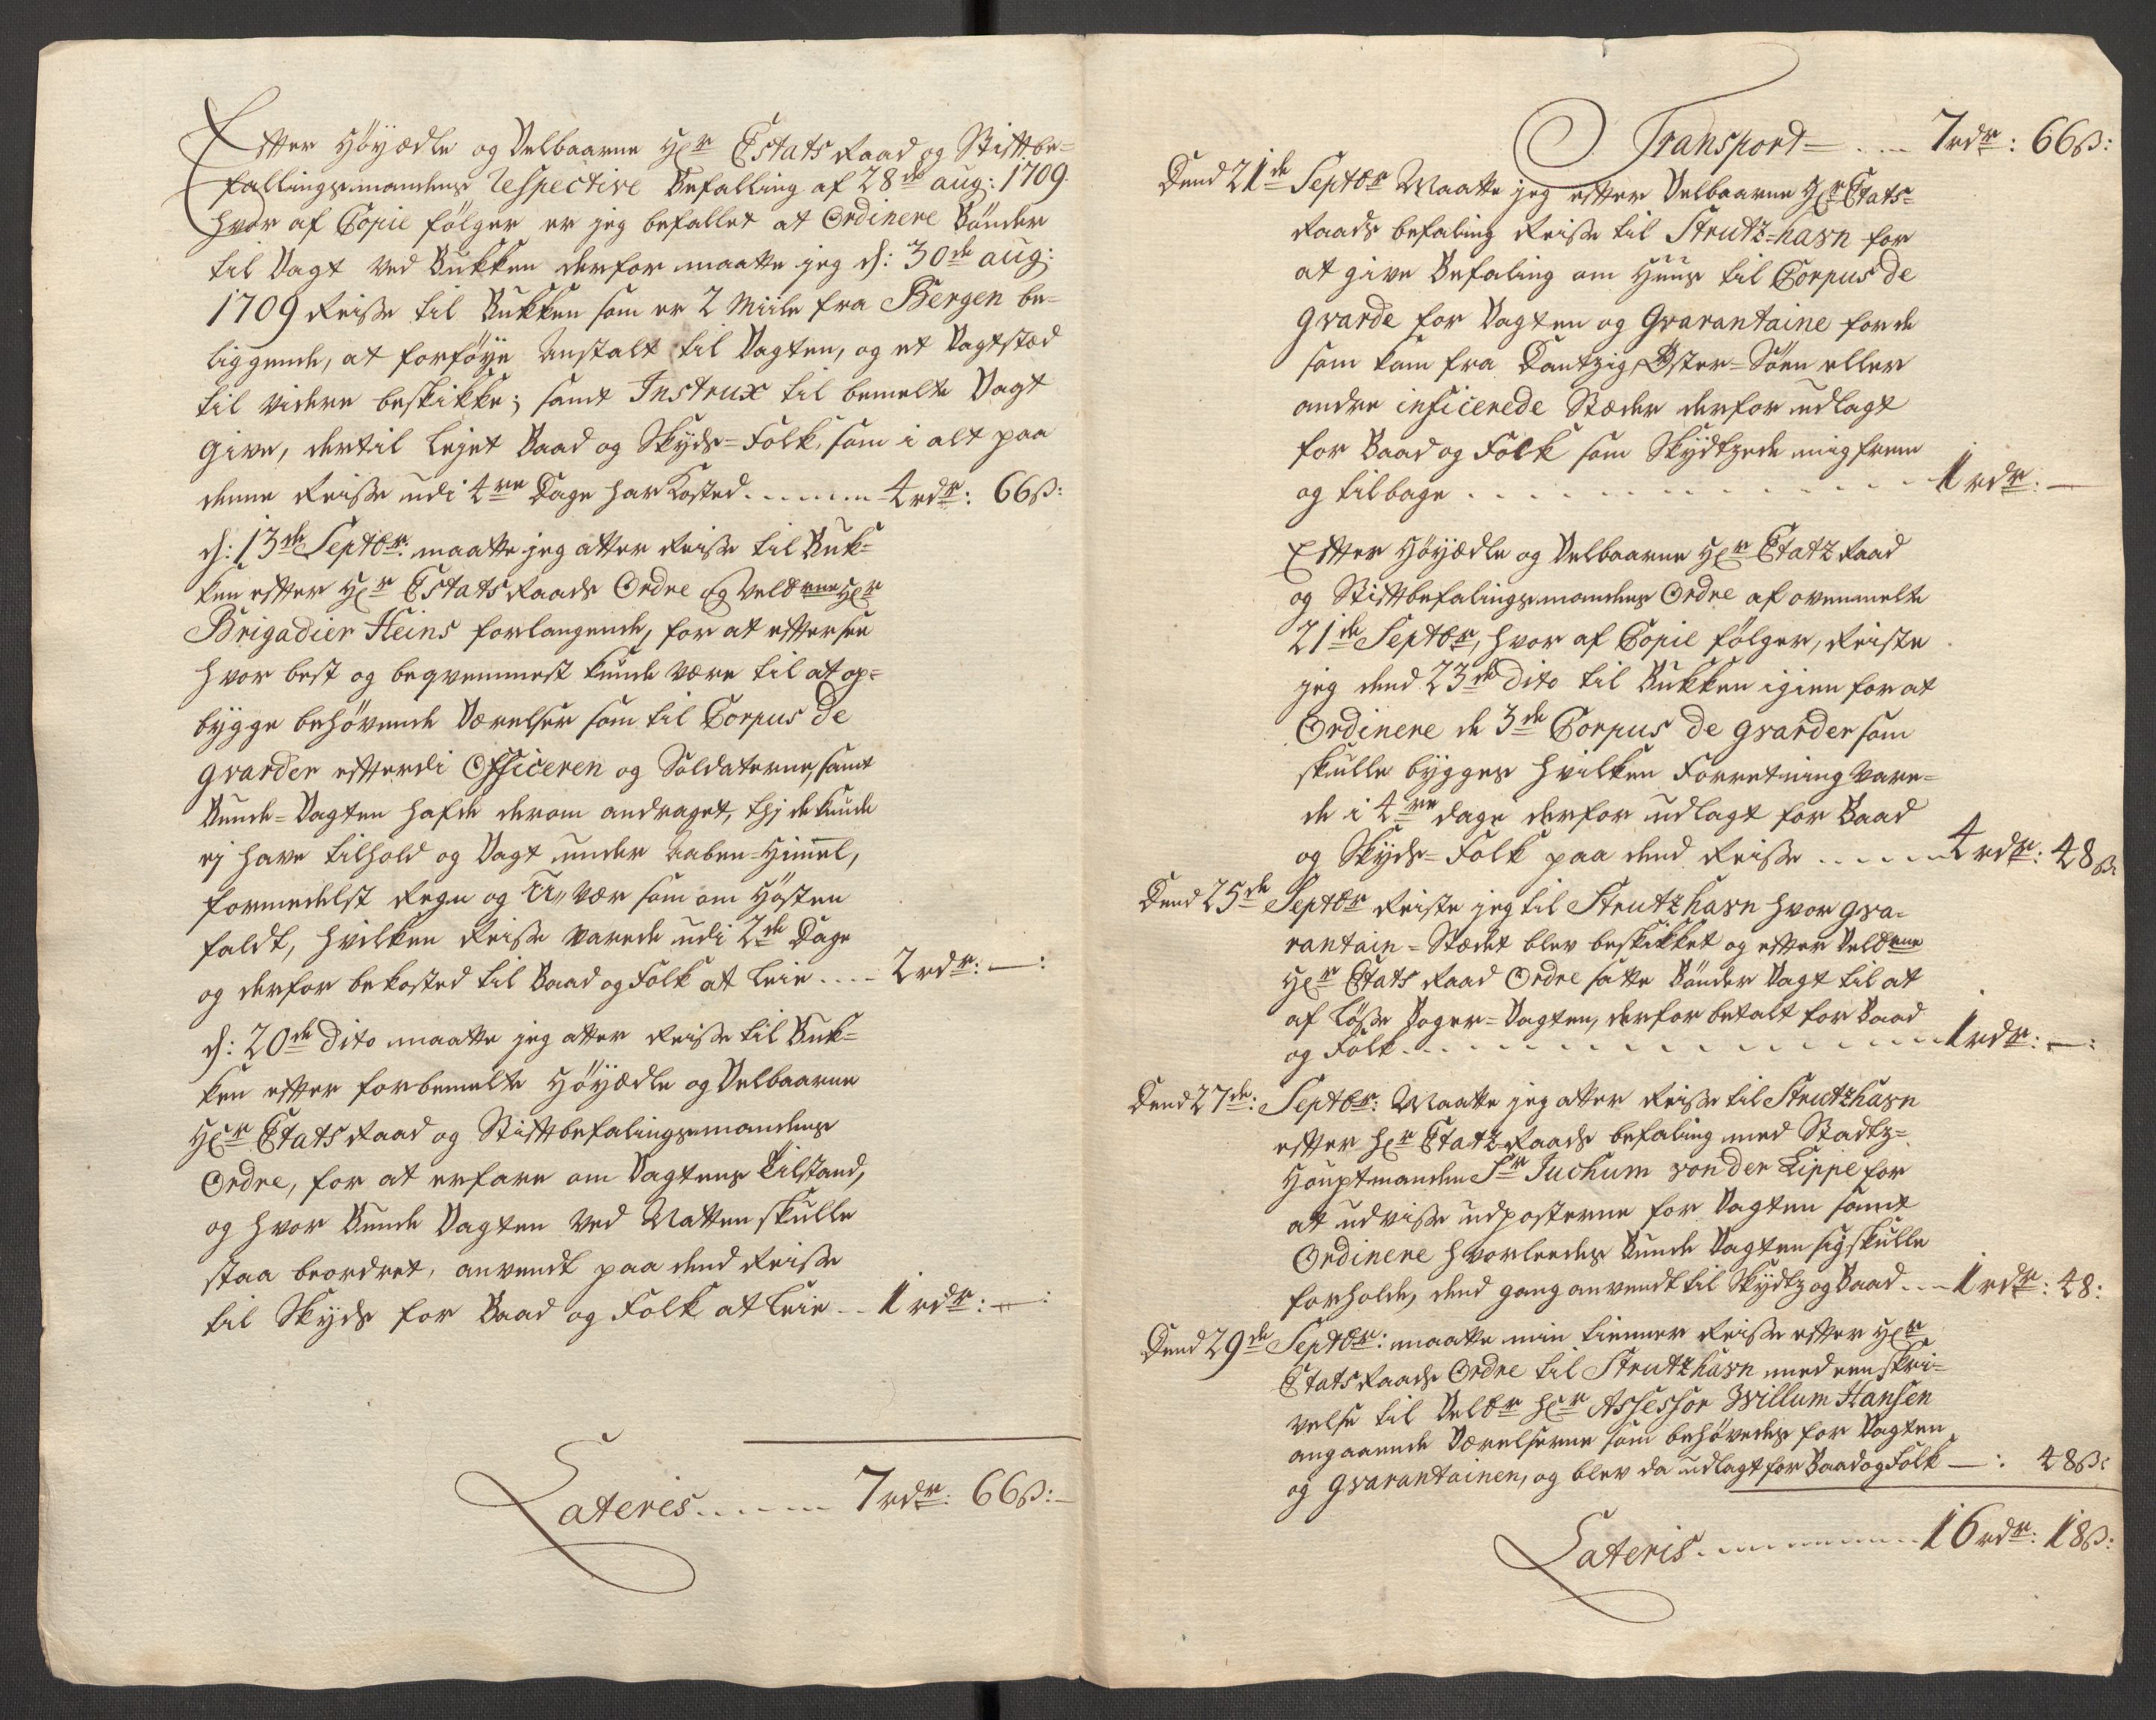 Efter Høyædle og Velbaarne Hr Estats Raad og Stiftbe=
fallingsmandens respective Befalling af 28de aug: 1709.
hvor af Copie følger er jeg befallet at Ordinere Bönder
til Vagt ved Bukken derfor maatte jeg d: 30de aug:
1709 Reisse til Bukken som er 2 Miile fra Bergen be=
liggende, at forföye Anstalt til Vagten, og et Vagtstæd
til videre beskikke; samt Instrux til bemelte Vagt
give, dertil lejet Baad og Skyds=Folk, som i alt paa
denne Reisse udi 4re Dage har Kosted ...... 4 rdr: 66 ß:
d: 13de Septbr: maatte jeg atter Reisse til Buk=
ken efter Hr Estats Raads Ordre og Velbrne Hr
Brigadier Heins forlangende, for at eftersee
hvor best og beqvemmest kunde være til at op=
bygge behövende Værelser som til Corpus de
gvarder efterdi Officeren og Soldaterne, samt
Bunde=Vagten hafde derom andraget, thj de kunde
ej have tilhold og Vagt under aaben=Himel,
formedelst Regn og U,,vær som om Høsten
faldt, hvilken Reisse varede udi 2de Dage
og derfor bekosted til Baad og Folk at leie .... 2 rdr: —:
d: 20de dito maatte jeg atter Reisse til Buk=
ken efter forbemelte Høyædle og Velbaarne
Hr Etats Raad og Stiftbefalingsmandens
Ordre, for at erfare om Vagtens tilstand,
og hvor Bunde Vagten ved Natten skulle
staa beordret, anvendt paa dend Reisse
til Skyds for Baad og Folk at leie .. 1 rdr: —:
Lateris ..... 7 rdr: 66 ß:
Transport = .... 7 rdr: 66 ß:
Dend 21de Septbr Maatte jeg efter Velbaarne Hr Etats=
Raads befaling Reisse til Strutz=havn for
at give Befaling om Huus til Corpus de
gvarde for Vagten og Qvarantaine for de
som kom fra Dantzig, Øster=Söen eller
andre inficerede Stæder derfor udlagt
for Baad og Folk som Skydtzede mig frem
og tilbage ............... 1 rdr: —
Efter Høyædle og Velbaarne Hr Etatz Raad
og Stiftbefalingsmandens Ordre af ovenmelte
21de Septbr, hvor af Copie følger, Reiste
jeg dend 23de dito til Bukken igien for at
Ordinere de 3de Corpus de gvarder som
skulle bygges hvilken Forretning vare=
de i 4re dage derfor udlagt for Baad
og Skyds=Folk paa dend Reisse ...... 4 rdr: 48 ß:
Dend 25de Septbr Reiste jeg til Strutzhavn hvor qva=
rantain=Stædet blev beskikket og efter Velbrne
Hr Etats Raad Ordre satte Bönder Vagt til at
af löse Borger=Vagten, derfor betalt for Baad
og Folk .................. 1 rdr: —:
Dend 27de: Septbr: Maatte jeg atter Reisse til Strutzhavn
efter Hr Etatz Raads befaling med Stadtz=
Houptmanden Sr Juchum von der Lippe for
at udvisse udposterne for Vagten samt
Ordinere hvorleedes Bunde Vagten sig skulle
forholde, dend gang anvendt til Skydtz og Baad ... 1 rdr: 48:
Dend 29de Septbr: maatte min tienner Reisse efter Hr
Etats Raads Ordre til Strutzhavn med een skri=
velse til Velbr Hr Assessor Willum Hansen
angaaende Værelserne som behövedes for Vagten
og Qvarantainen, og blev da udlagt for Baad og Folk —: 48 ß:
Lateris .......... 16 rdr: 18 ß: